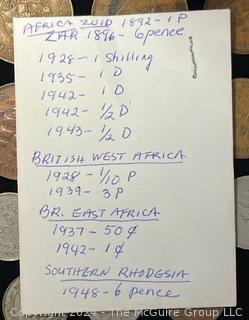 AFRICA ZUID 1892 - 1 P
ZAR 1896 - 6 pence
1928 - 1 Shilling
1935 - 1 D
1942 - 1 D
1942 - 1/2 D
1943 - 1/2 D
BRITISH WEST AFRICA
1928 - 1/10 P
1939 - 3 P
BR. EAST AFRICA
1937 - 50 ¢
1942 - 1 ¢
SOUTHERN RHODESIA
1948 - 6 pence
Copyright 2024 - The McGuire Group LLC